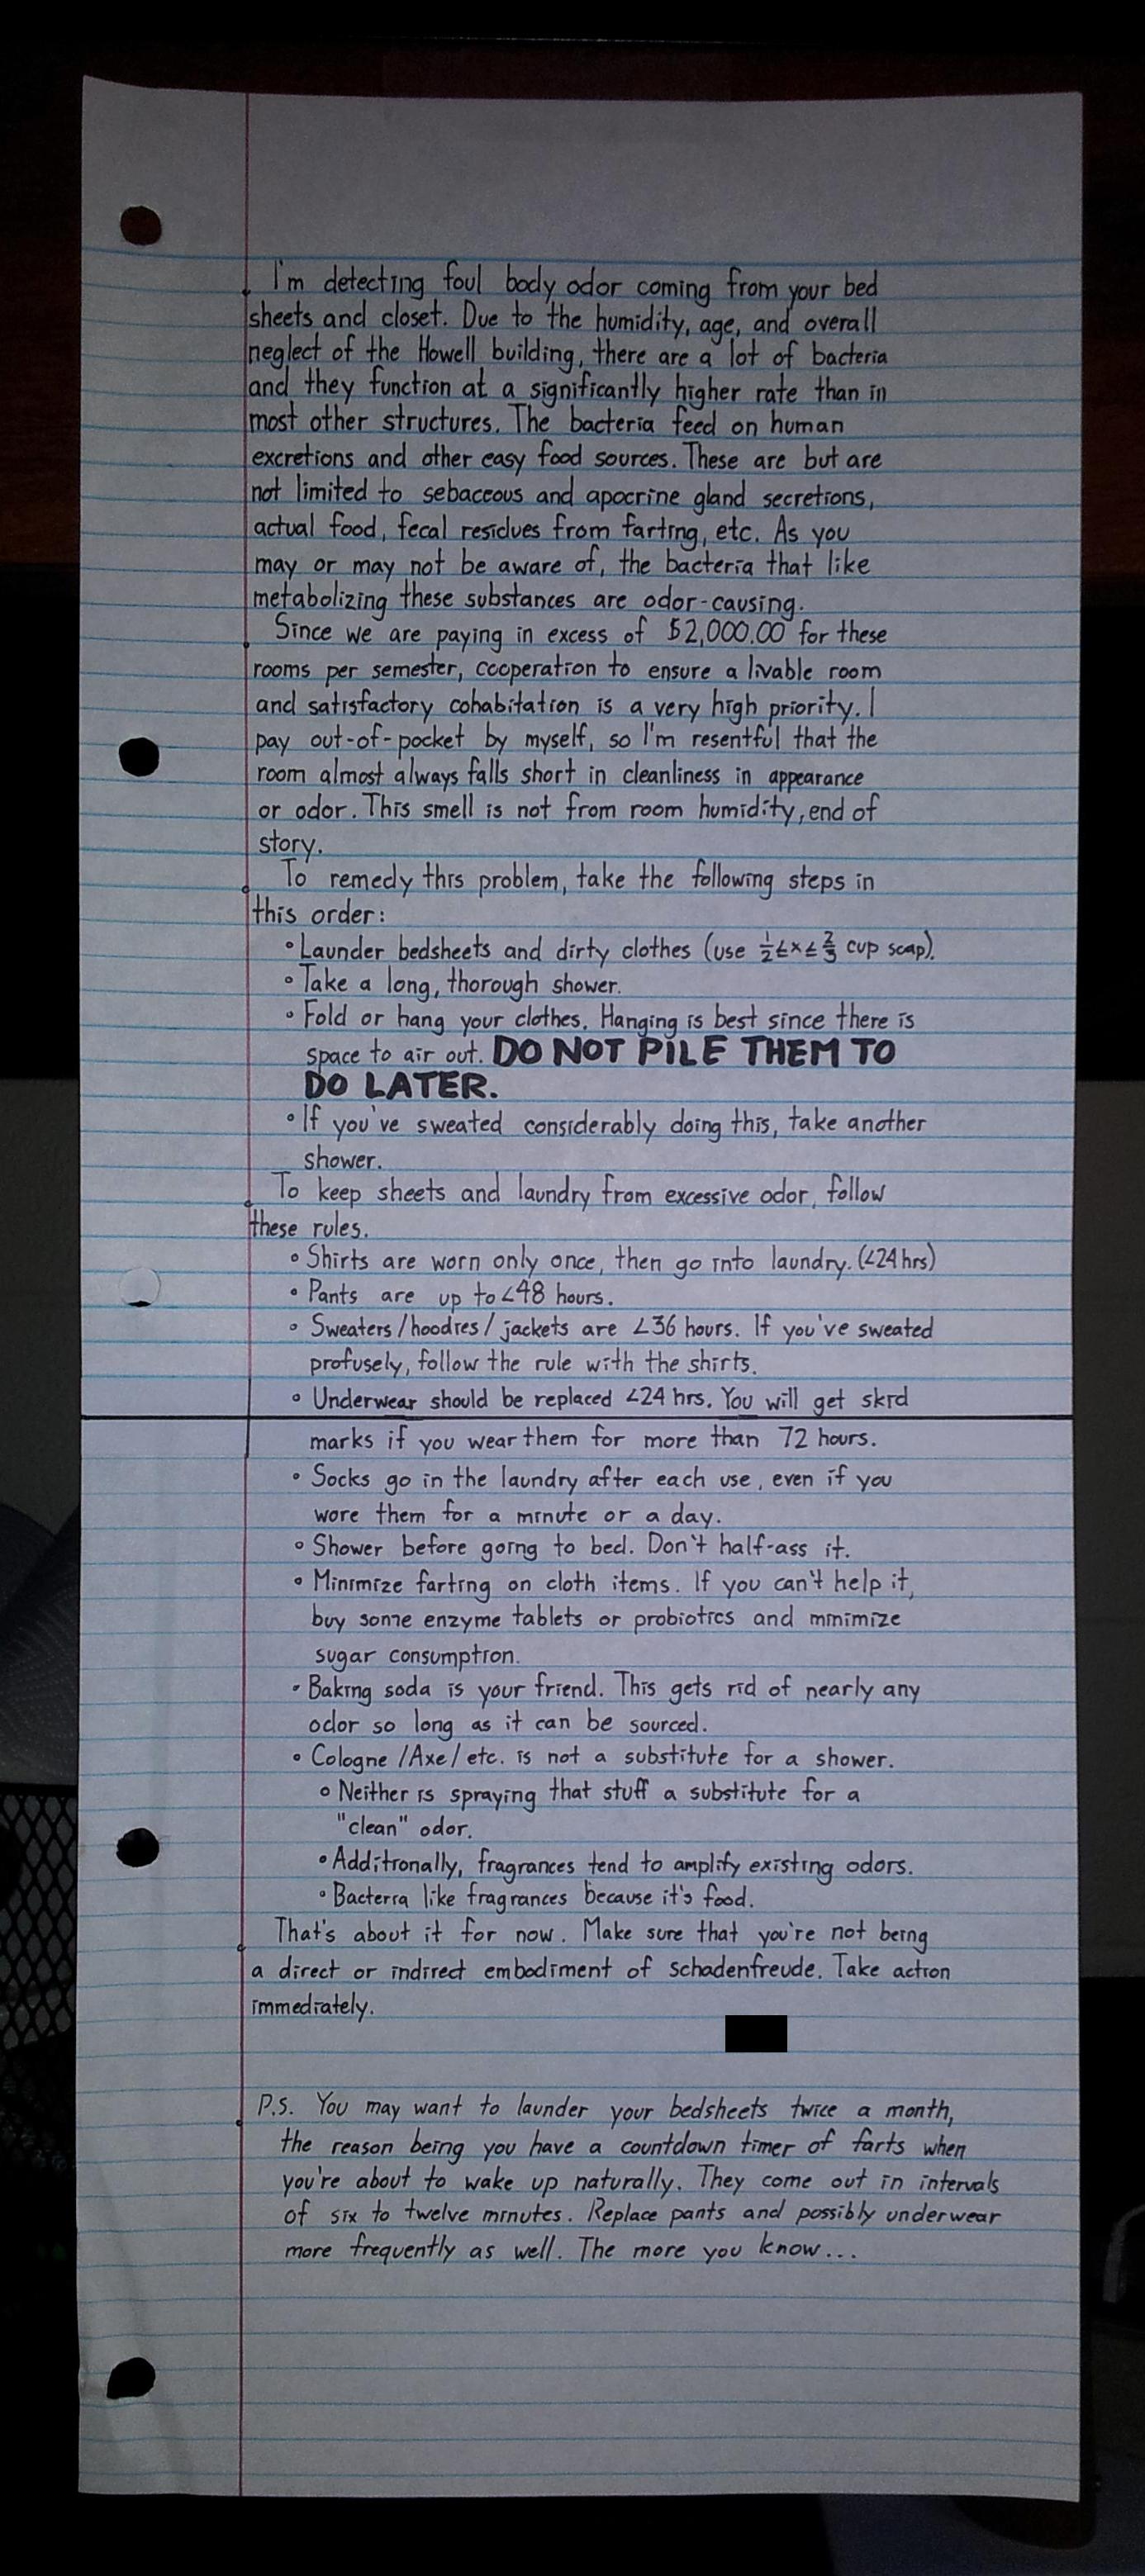 I'm detecting foul body odor coming from your bed
sheets and closet. Due to the humidity, age, and overall
neglect of the Howell building, there are a lot of bacteria
and they function at a significantly higher rate than in
most other structures. The bacteria feed on human
excretions and other easy food sources. These are but are
not limited to sebaceous and apocrine gland secretions,
actual food, fecal residues from farting, etc. As you
may or may not be aware of, the bacteria that like
metabolizing these substances are odor-causing.
Since we are paying in excess of $2,000.00 for these
rooms per semester, cooperation to ensure a livable room
and satisfactory cohabitation is a very high priority. I
pay out-of-pocket by myself, so I'm resentful that the
room almost always falls short in cleanliness in appearance
or odor. This smell is not from room humidity, end of
story.
To remedy this problem, take the following steps in
this order:
• Launder bedsheets and dirty clothes (use ½<x<⅔ cup soap).
• Take a long, thorough shower.
• Fold or hang your clothes. Hanging is best since there is
space to air out. DO NOT PILE THEM TO
DO LATER.
• If you've sweated considerably doing this, take another
shower.
To keep sheets and laundry from excessive odor, follow
these rules.
• Shirts are worn only once, then go into laundry. (<24 hrs)
• Pants are up to <48 hours.
• Sweaters/hoodies/jackets are <36 hours. If you've sweated
profusely, follow the rule with the shirts.
• Underwear should be replaced <24 hrs. You will get skid
marks if you wear them for more than 72 hours.
• Socks go in the laundry after each use, even if you
wore them for a minute or a day.
• Shower before going to bed. Don't half-ass it.
• Minimize farting on cloth items. If you can't help it,
buy some enzyme tablets or probiotics and minimize
sugar consumption.
• Baking soda is your friend. This gets rid of nearly any
odor so long as it can be sourced.
• Cologne/Axe/etc. is not a substitute for a shower.
• Neither is spraying that stuff a substitute for a
"clean" odor.
• Additionally, fragrances tend to amplify existing odors.
• Bacteria like fragrances because it's food.
That's about it for now. Make sure that you're not being
a direct or indirect embodiment of schadenfreude. Take action
immediately.
P.S. You may want to launder your bedsheets twice a month,
the reason being you have a countdown timer of farts when
you're about to wake up naturally. They come out in intervals
of six to twelve minutes. Replace pants and possibly underwear
more frequently as well. The more you know...